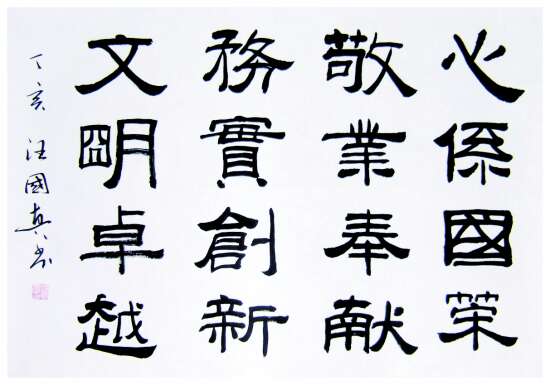 心係國荣
敬業奉献
務實創新
文明卓越
丁亥 汪國真书